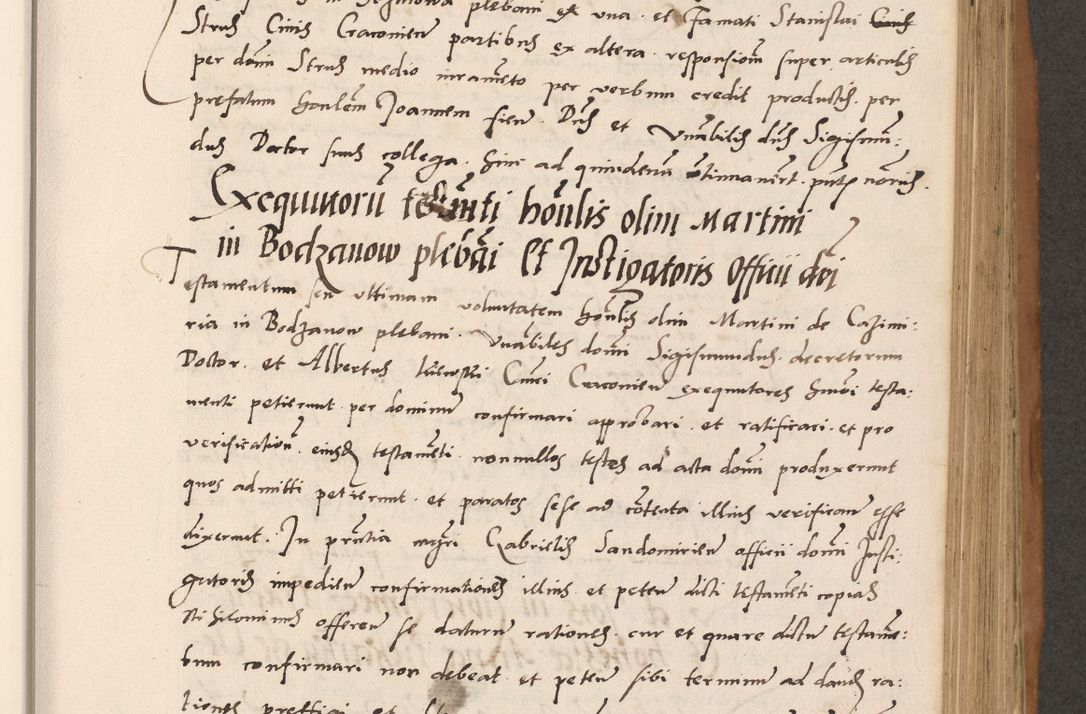 plebani ex una et famati Stanislai
Strus Civis Cracovien partibus ex altera responsiom super articulis
per domi Strus medio iurameto per verbum credit productis per
prefatum honlem Joannem fieri Dus et Vnabilis dus Sigismu:
dus Doctor suus collega hinc ad quindenu otinuavert pntp notriis.
Exequutoru testamti honlis olim Martini
in Bodzanow plebani Et Instigatoris Officii dni
Testamentum seu ultimam voluntatem honlis olim Martini de Cazimi:
ria in Bodzanow plebani Vnabiles domi Sigismundus decretorum
Doctor et Albertus Civi Cracovien exequutores huiusmodi testa:
menti petierunt per dominu confirmari approbari et ratificari et pro
verificatione eiusde testameti nonnullos testes ad acta domi produxerunt
quos admitti petierunt et paratos sese ad cotenta illius verificari esse
dixerunt In pntia mgri Gabrielis Sandomirien officii domi Insti:
gatoris impedien confirmationes illius et peten dicti testameti copias
offeren se daturu rationes cur et quare dictu testame:
tum confirmari non debeat et peten sibi terminum ad dandas ra:
tiones prefigi et